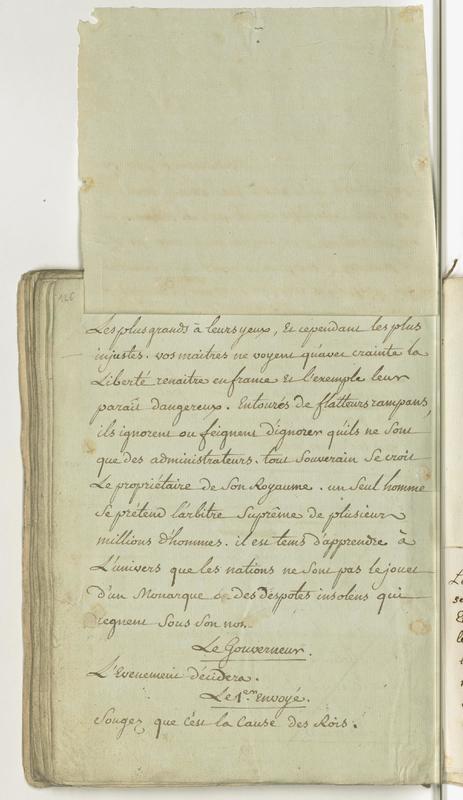 126
Les plus grands à leurs yeux, Et cependant les plus
injustes. vos maitres ne voyent qu'avec crainte la
Liberté renaitre en france Et l'exemple leur
parait dangereux. Entourés de flatteurs rampans,
ils ignorent ou feignent d'ignorer qu'ils ne sont
que des administrateurs. tout Souverain se croit
Le propriétaire de son Royaume. un seul homme
se prétend l'arbitre Suprême de plusieurs
millions d'hommes. il est tems d'apprendre à
L'univers que les nations ne sont pas le jouet
d'un Monarque et des déspotes insolens qui
regnent sous son nom.
Le Gouverneur.
L'Evenement décidera.
Le 1er Envoyé.
Songez que c'est la Cause des Rois.